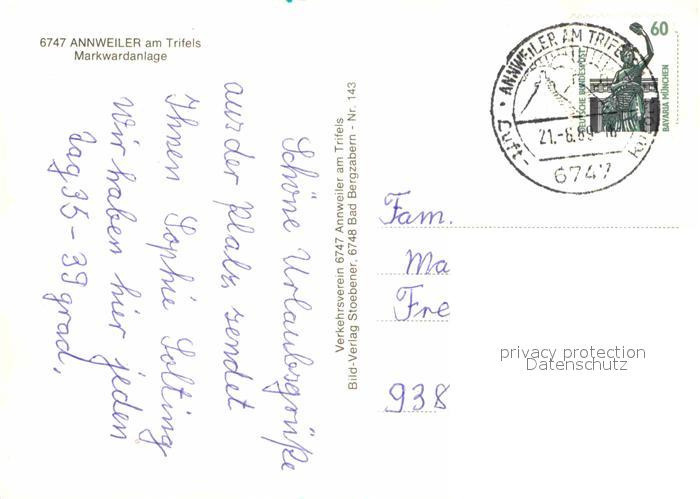 6747 ANNWEILER am Trifels
Markwardanlage
Schöne Urlaubsgrüße
aus der Pfalz sendet
Ihnen Sophie Solting
Wir haben hier jeden
Tag 35 - 39 grad.
Verkehrsverein 6747 Annweiler am Trifels
Bild-Verlag Stoebener, 6748 Bad Bergzabern - Nr. 143
ANNWEILER AM TRIFELS
Luft-
21.-6.89
6747
60
DEUTSCHE BUNDESPOST
BAVARIA MÜNCHEN
Fam.
Ma
Fre
938
privacy protection
Datenschutz